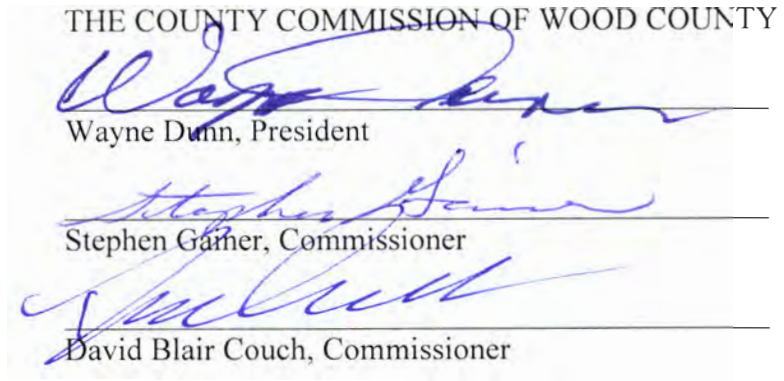 THE COUNTY COMMISSION OF WOOD COUNTY
Wayne Dunn, President
Stephen Gainer
Stephen Gainer, Commissioner
David Blair Couch, Commissioner